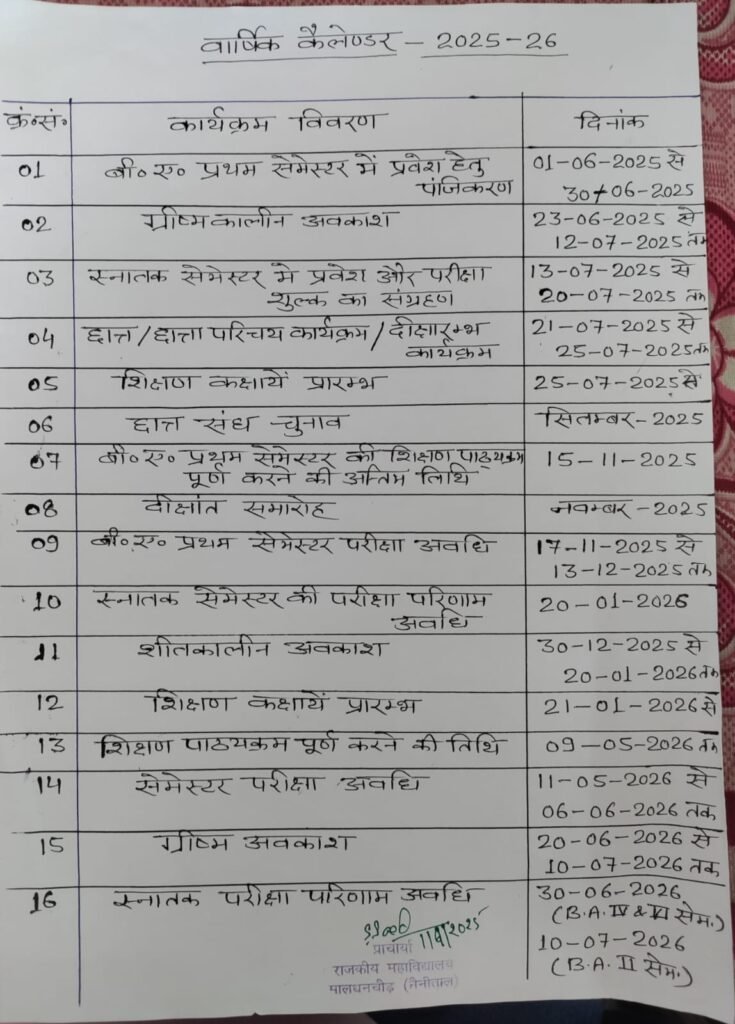 वार्षिक कैलेण्डर - 2025-26
क्र०सं० कार्यक्रम विवरण दिनांक
01 बी० ए० प्रथम सेमेस्टर में प्रवेश हेतु 01-06-2025 से
पंजिकरण 30-06-2025
02 ग्रीष्मकालीन अवकाश 23-06-2025 से
12-07-2025 तक
03 स्नातक सेमेस्टर मे प्रवेश और परीक्षा 13-07-2025 से
शुल्क का संग्रहण 20-07-2025 तक
04 छात्र/छात्रा परिचय कार्यक्रम/दीक्षारम्भ 21-07-2025 से
कार्यक्रम 25-07-2025 तक
05 शिक्षण कक्षायें प्रारम्भ 25-07-2025 से
06 छात्र संघ चुनाव सितम्बर-2025
07 बी० ए० प्रथम सेमेस्टर की शिक्षण पाठ्यक्रम 15-11-2025
पूर्ण करने की अन्तिम तिथि
08 दीक्षांत समारोह नवम्बर-2025
09 बी० ए० प्रथम सेमेस्टर परीक्षा अवधि 17-11-2025 से
13-12-2025 तक
10 स्नातक सेमेस्टर की परीक्षा परिणाम 20-01-2026
अवधि
11 शीतकालीन अवकाश 30-12-2025 से
20-01-2026 तक
12 शिक्षण कक्षायें प्रारम्भ 21-01-2026 से
13 शिक्षण पाठयक्रम पूर्ण करने की तिथि 09-05-2026 तक
14 सेमेस्टर परीक्षा अवधि 11-05-2026 से
06-06-2026 तक
15 ग्रीष्म अवकाश 20-06-2026 से
10-07-2026 तक
16 स्नातक परीक्षा परिणाम अवधि 30-06-2026
(B.A. IV & VI सेम.)
10-07-2026
(B.A. II सेम.)
प्राचार्या
राजकीय महाविद्यालय
मालधनचौड़ (नैनीताल)